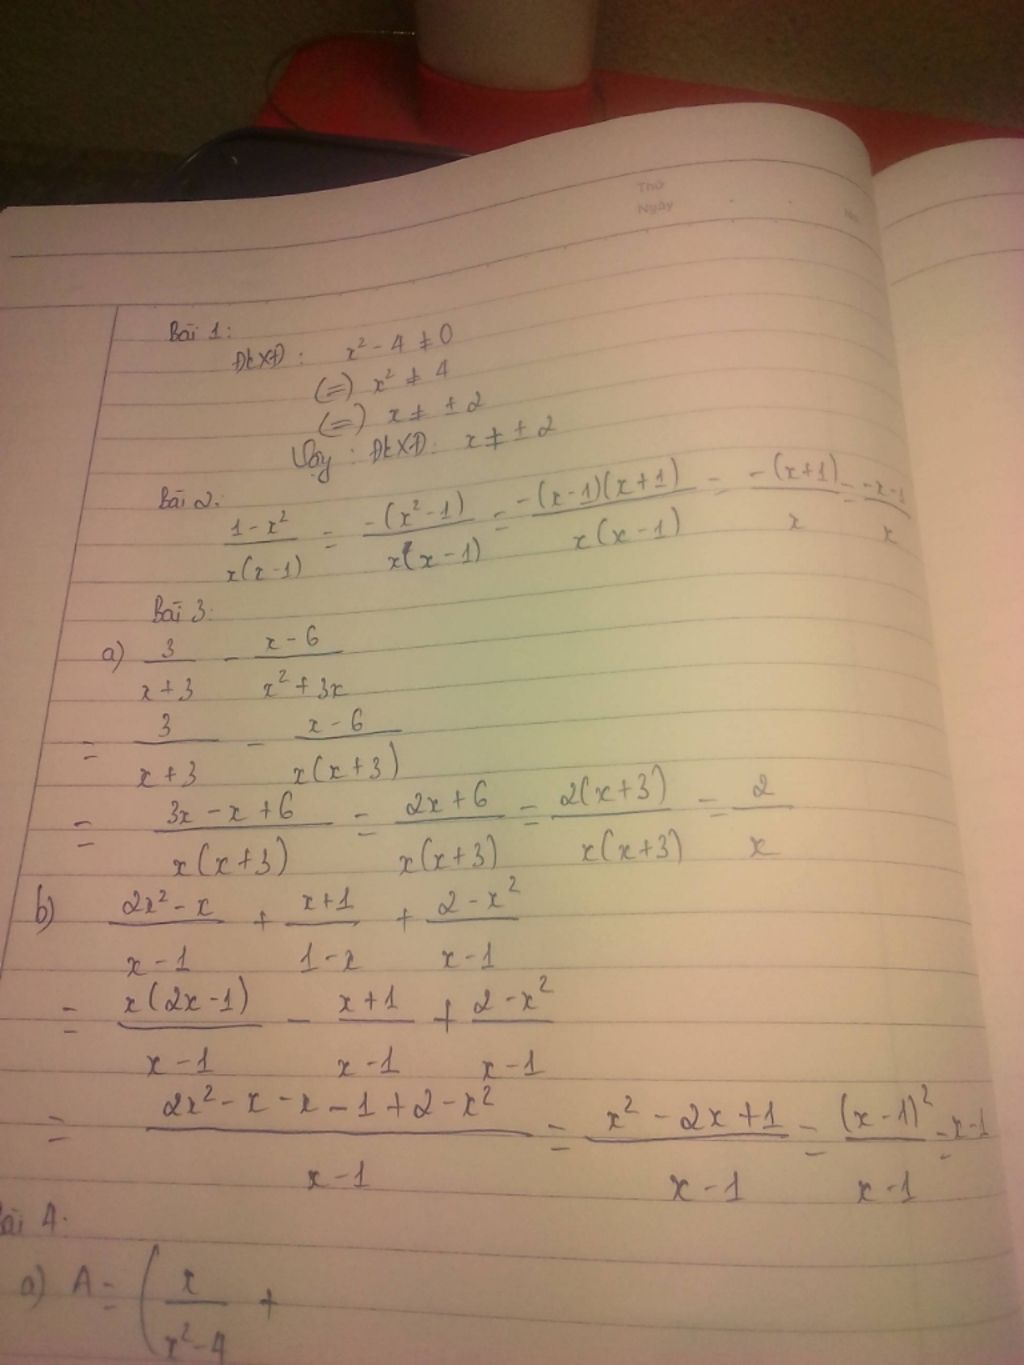 Thứ
Ngày
No.
Bài 1:
ĐKXĐ: x² - 4 ≠ 0
(=) x² ≠ 4
(=) x ≠ ± 2
Vậy: ĐKXĐ: x ≠ ± 2
Bài 2:
(1 - x²)/(x(x-1)) = (-(x²-1))/(x(x-1)) = (-(x-1)(x+1))/(x(x-1)) = (-(x+1))/x = (-x-1)/x
Bài 3:
a) 3/(x+3) - (x-6)/(x²+3x)
= 3/(x+3) - (x-6)/(x(x+3))
= (3x-x+6)/(x(x+3)) = (2x+6)/(x(x+3)) = (2(x+3))/(x(x+3)) = 2/x
b) (2x²-x)/(x-1) + (x+1)/(1-x) + (2-x²)/(x-1)
= (x(2x-1))/(x-1) - (x+1)/(x-1) + (2-x²)/(x-1)
= (2x²-x-x-1+2-x²)/(x-1) = (x²-2x+1)/(x-1) = (x-1)²/(x-1) = x-1
ài 4:
a) A = (x/(x²-4) +